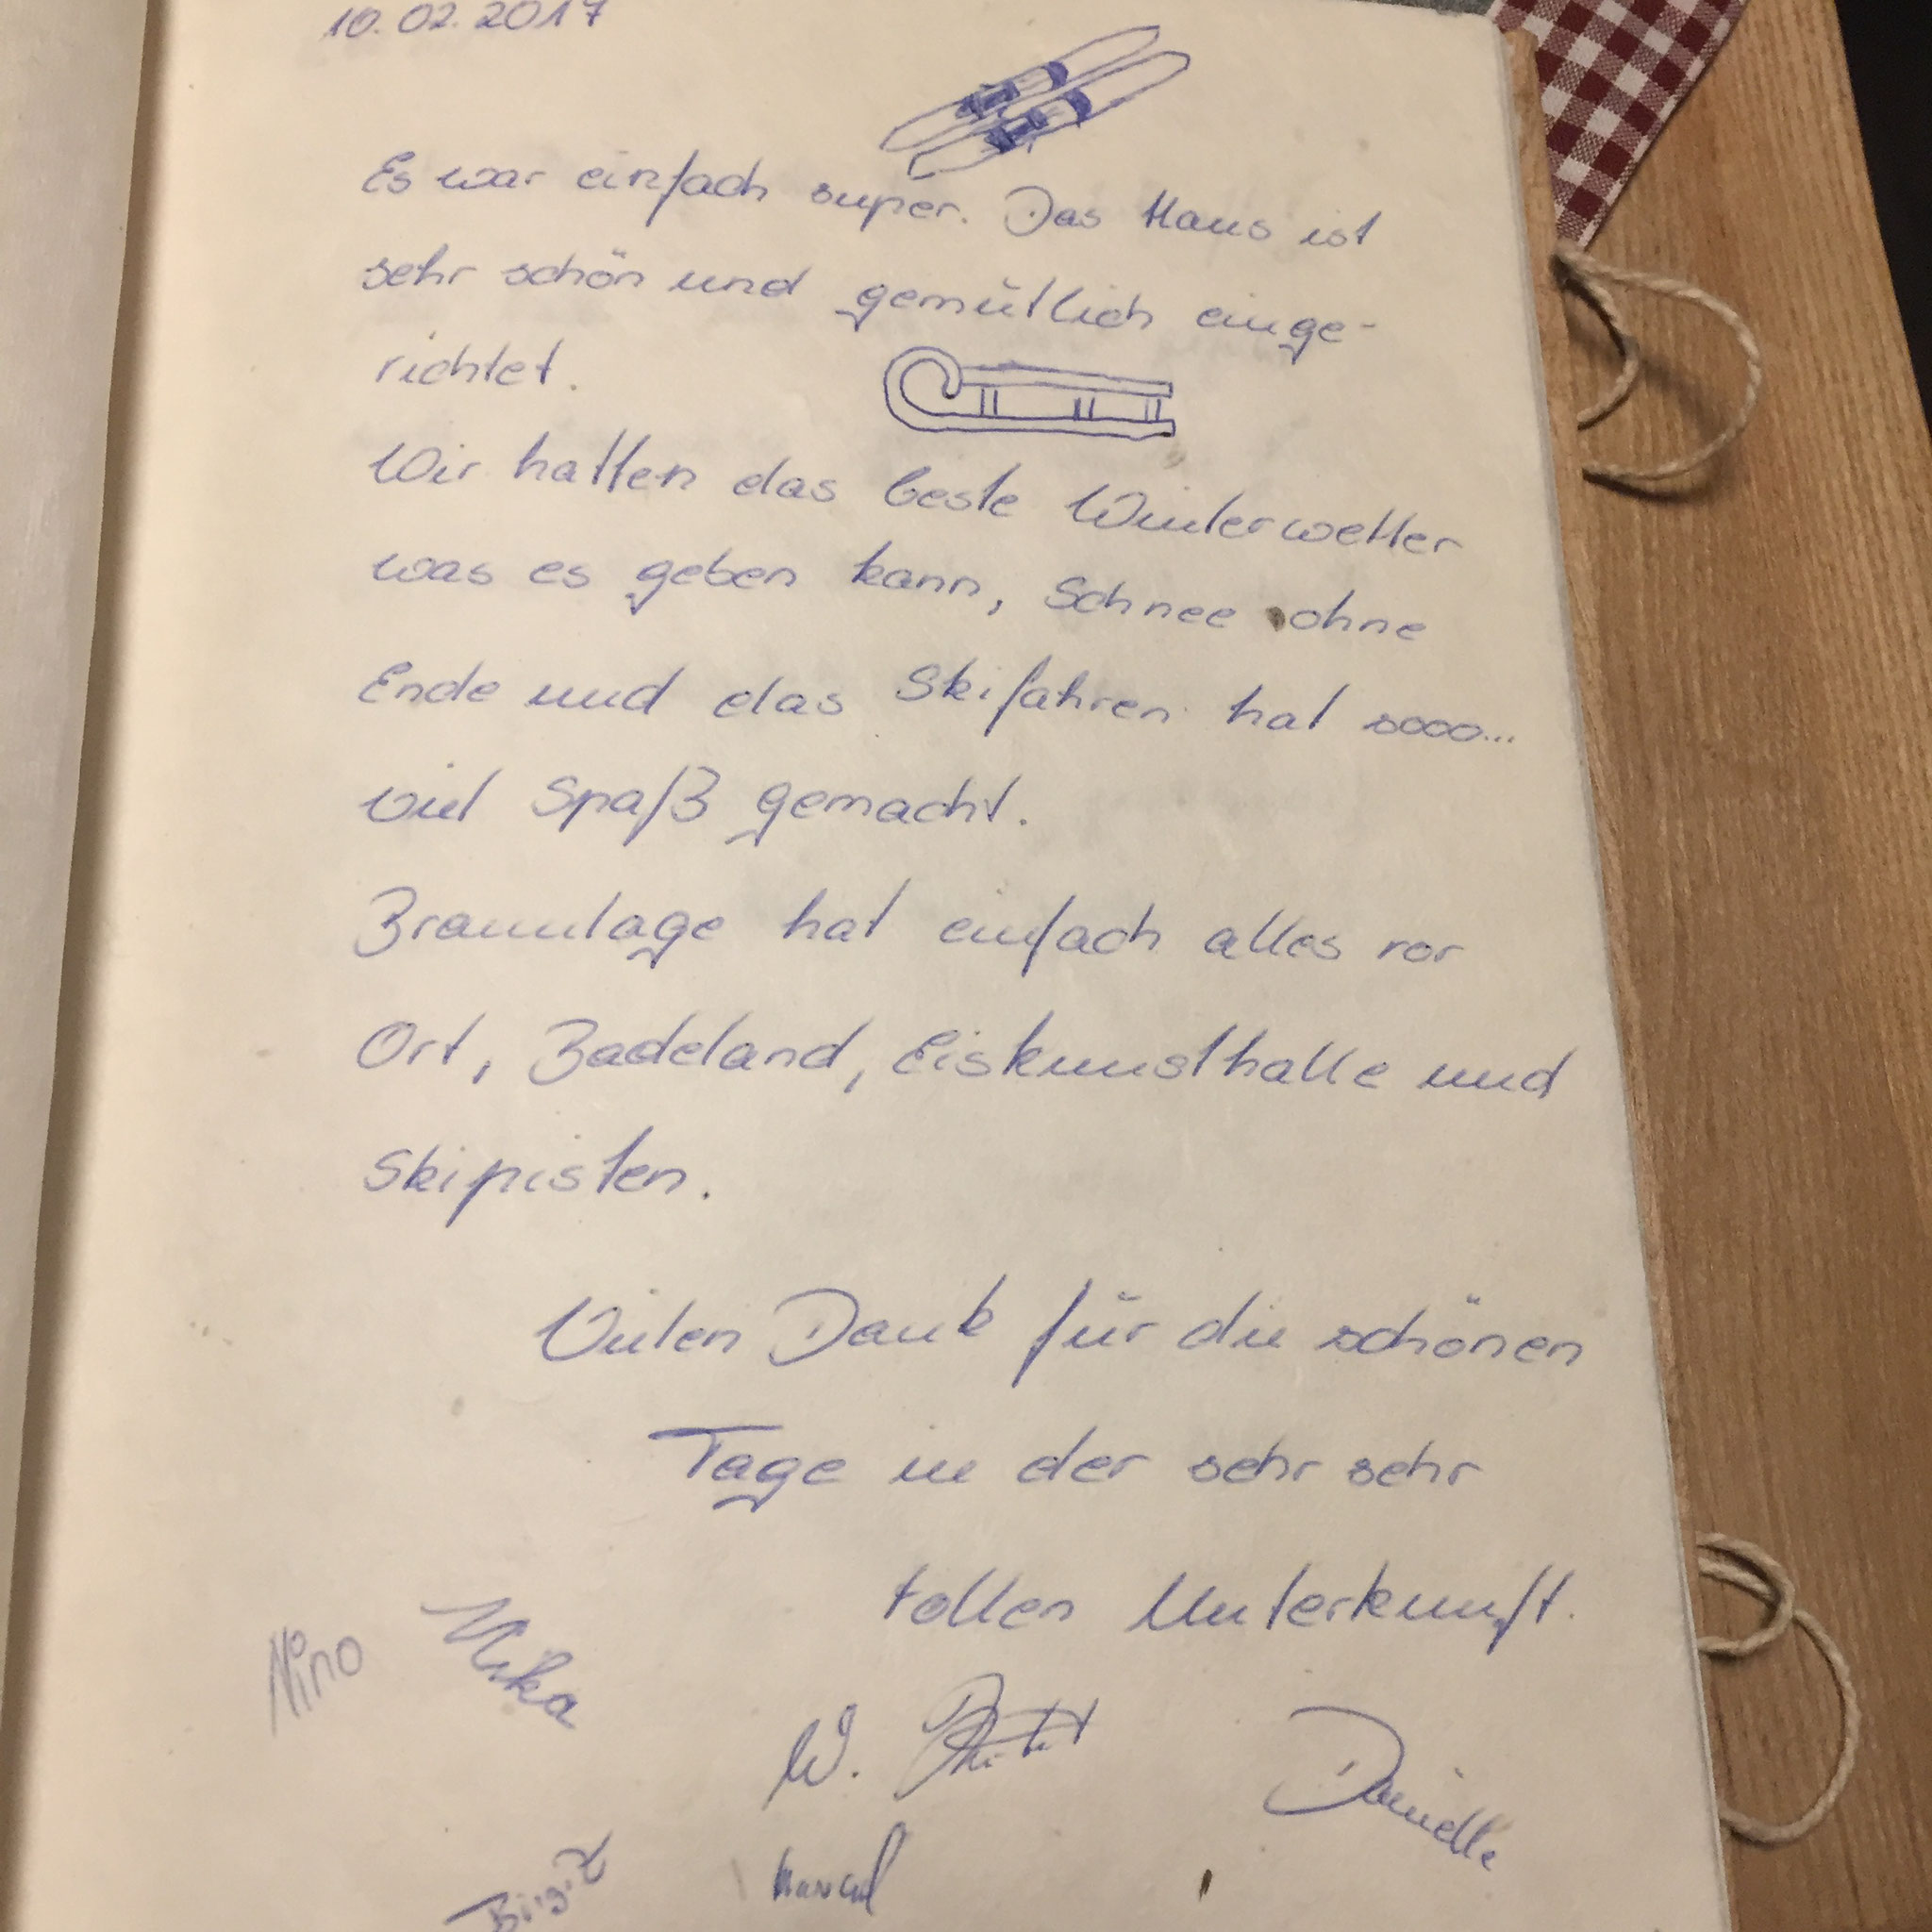 10.02.2017
Es war einfach super. Das Haus ist
sehr schön und gemütlich einge-
richtet.
Wir hatten das beste Winterwetter
was es geben kann, Schnee ohne
Ende und das Skifahren hat sooo...
viel Spaß gemacht.
Braunlage hat einfach alles vor
Ort, Badeland, Eiskunsthalle und
Skipisten.
Vielen Dank für die schönen
Tage in der sehr sehr
tollen Unterkunft.
Nino Mika
W. Danielle
Birgit Marcel